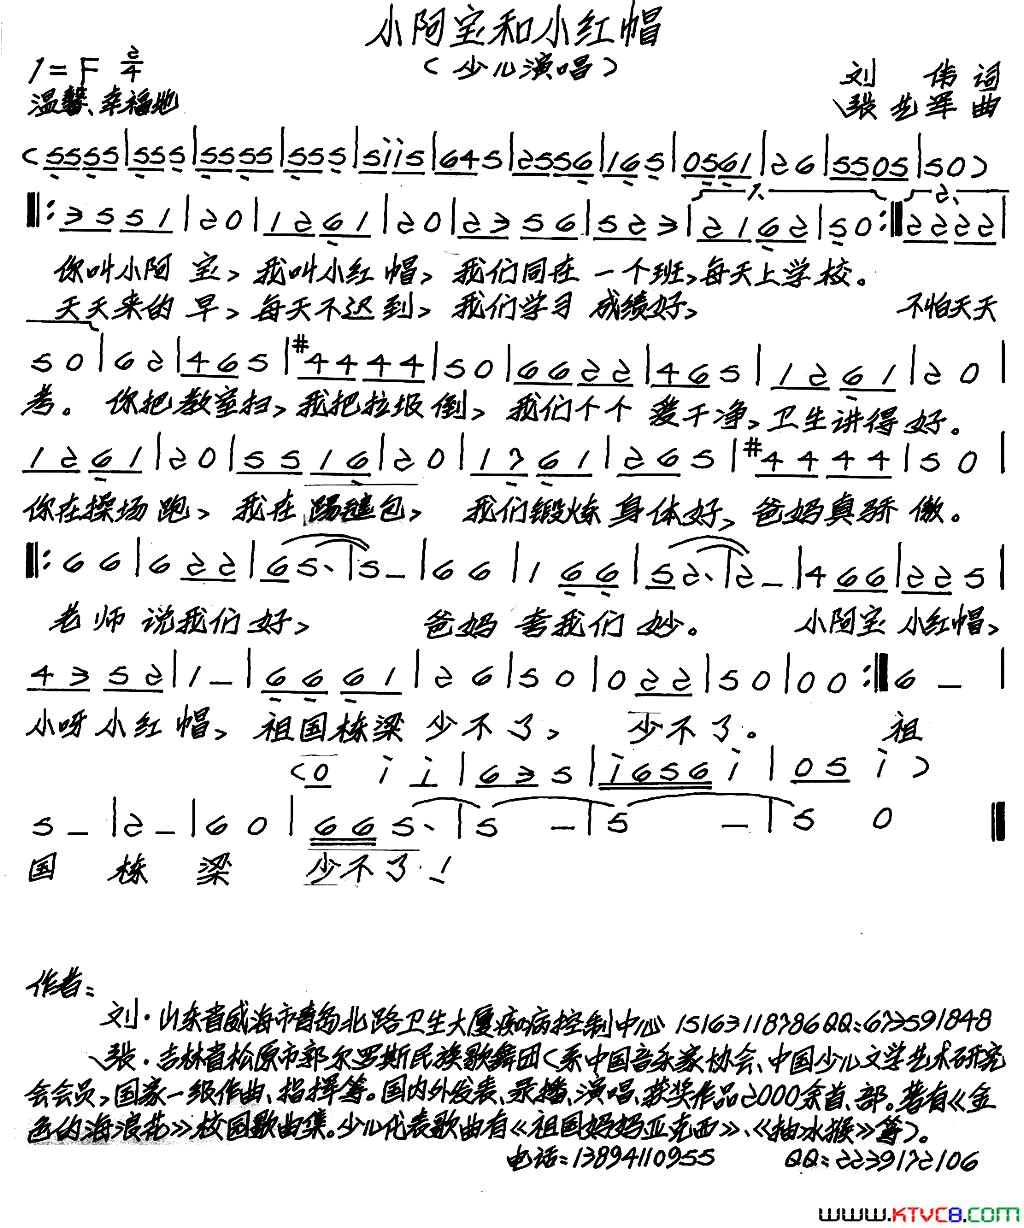 小阿宝和小红帽
1=F 2/4 (少儿演唱) 刘 伟 词
温馨、幸福地 张艺军 曲
(5555|555|5555|555|5ii5|645|2556|165|0561|26|5505|50)
1. 2.
‖:3551|20|1261|20|2356|523|2162|50:‖2222|
你叫小阿宝,我叫小红帽,我们同在一个班,每天上学校。
天天来的早,每天不迟到,我们学习成绩好, 不怕天天
50|62|465|#4444|50|6622|465|1261|20|
考。你把教室扫,我把垃圾倒,我们个个爱干净,卫生讲得好。
1261|20|5516|20|1761|265|#4444|50|
你在操场跑,我在踢毽包,我们锻炼身体好,爸妈真骄傲。
‖:66|622|65.|5-|66|166|52.|2-|466|225|
老师说我们好, 爸妈夸我们妙。 小阿宝小红帽,
4352|1-|6661|26|50|022|50|00:‖6-|
小呀小红帽,祖国栋梁少不了, 少不了。 祖
(0 i i|635|i656i|05i)
5-|2-|60|665.|5-|5-|50‖
国 栋 梁 少不了!
作者:
刘·山东省威海市青岛北路卫生大厦疾病控制中心 15163118786QQ:673591848
张·吉林省松原市郭尔罗斯民族歌舞团(系中国音乐家协会、中国少儿文学艺术研究
会会员,国家一级作曲、指挥等。国内外发表、录播、演唱、获奖作品2000余首、部。著有《金
色的海浪花》校园歌曲集。少儿代表歌曲有《祖国妈妈亚克西》、《抽水猴》等)。
电话:13894110955 QQ:2239172106
www.KTVC8.com